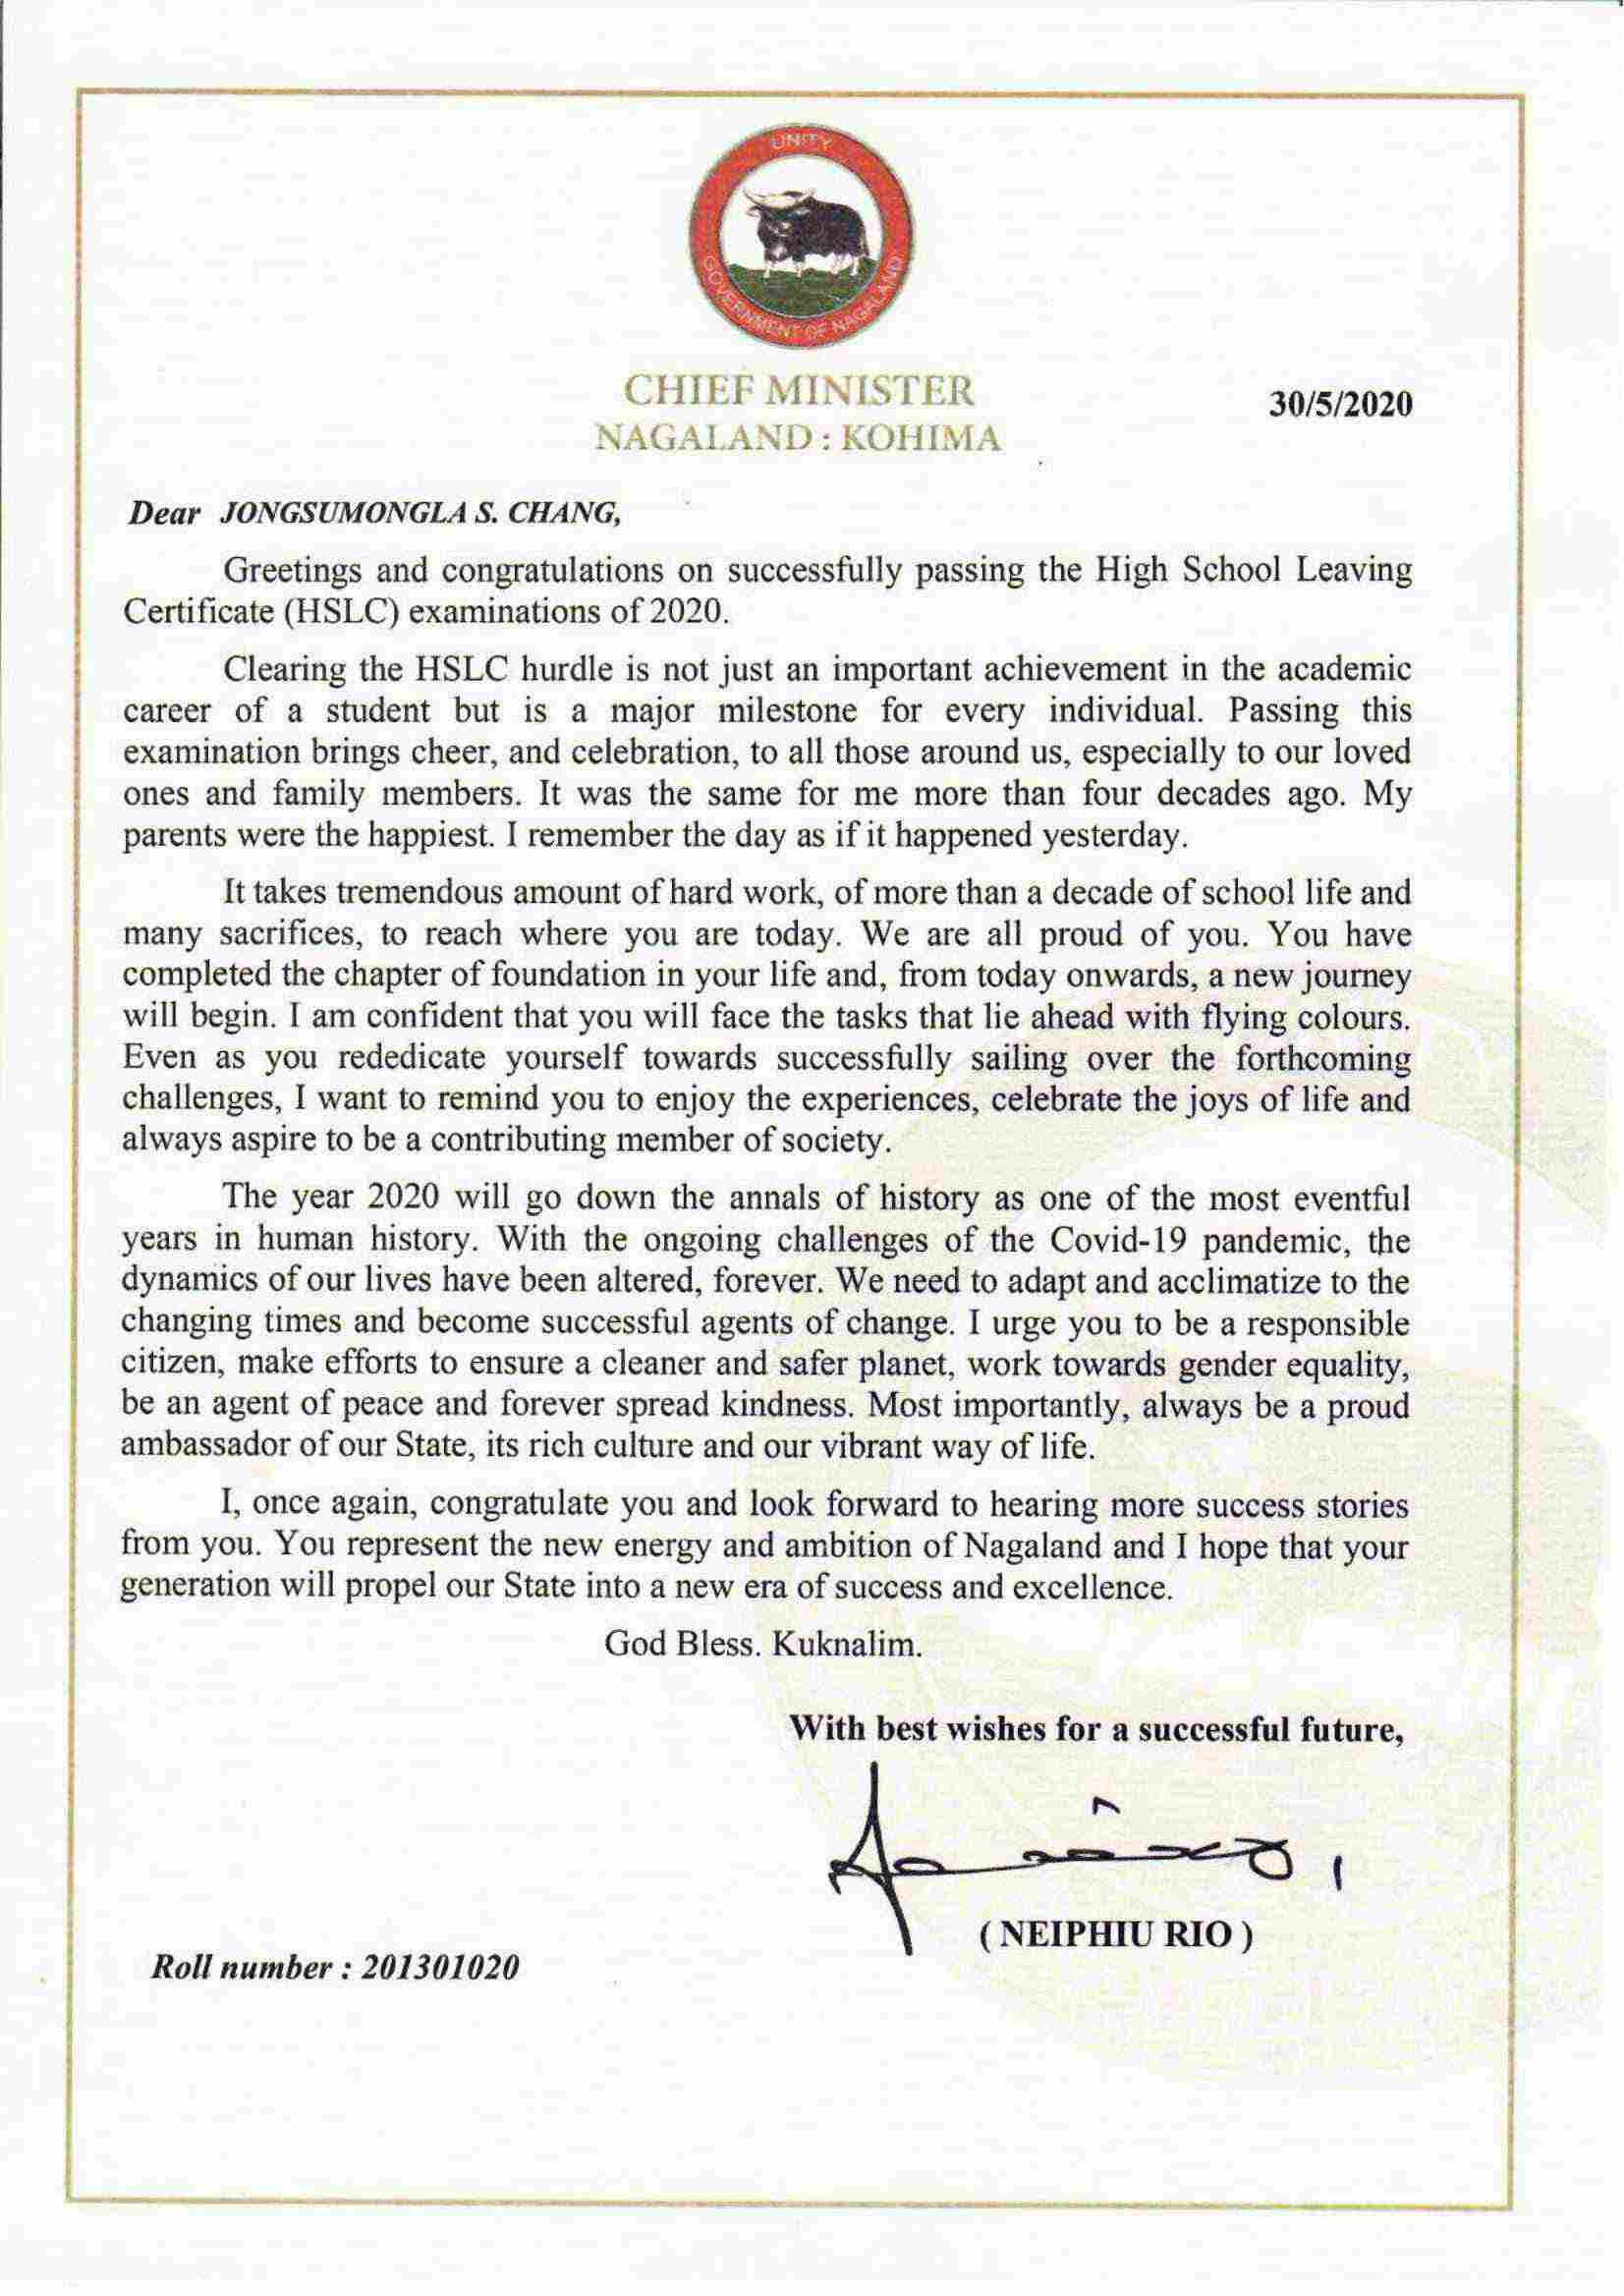 UNITY
GOVERNMENT OF NAGALAND
CHIEF MINISTER
NAGALAND : KOHIMA
30/5/2020
Dear JONGSUMONGLA S. CHANG,
Greetings and congratulations on successfully passing the High School Leaving
Certificate (HSLC) examinations of 2020.
Clearing the HSLC hurdle is not just an important achievement in the academic
career of a student but is a major milestone for every individual. Passing this
examination brings cheer, and celebration, to all those around us, especially to our loved
ones and family members. It was the same for me more than four decades ago. My
parents were the happiest. I remember the day as if it happened yesterday.
It takes tremendous amount of hard work, of more than a decade of school life and
many sacrifices, to reach where you are today. We are all proud of you. You have
completed the chapter of foundation in your life and, from today onwards, a new journey
will begin. I am confident that you will face the tasks that lie ahead with flying colours.
Even as you rededicate yourself towards successfully sailing over the forthcoming
challenges, I want to remind you to enjoy the experiences, celebrate the joys of life and
always aspire to be a contributing member of society.
The year 2020 will go down the annals of history as one of the most eventful
years in human history. With the ongoing challenges of the Covid-19 pandemic, the
dynamics of our lives have been altered, forever. We need to adapt and acclimatize to the
changing times and become successful agents of change. I urge you to be a responsible
citizen, make efforts to ensure a cleaner and safer planet, work towards gender equality,
be an agent of peace and forever spread kindness. Most importantly, always be a proud
ambassador of our State, its rich culture and our vibrant way of life.
I, once again, congratulate you and look forward to hearing more success stories
from you. You represent the new energy and ambition of Nagaland and I hope that your
generation will propel our State into a new era of success and excellence.
God Bless. Kuknalim.
With best wishes for a successful future,
( NEIPHIU RIO )
Roll number : 201301020